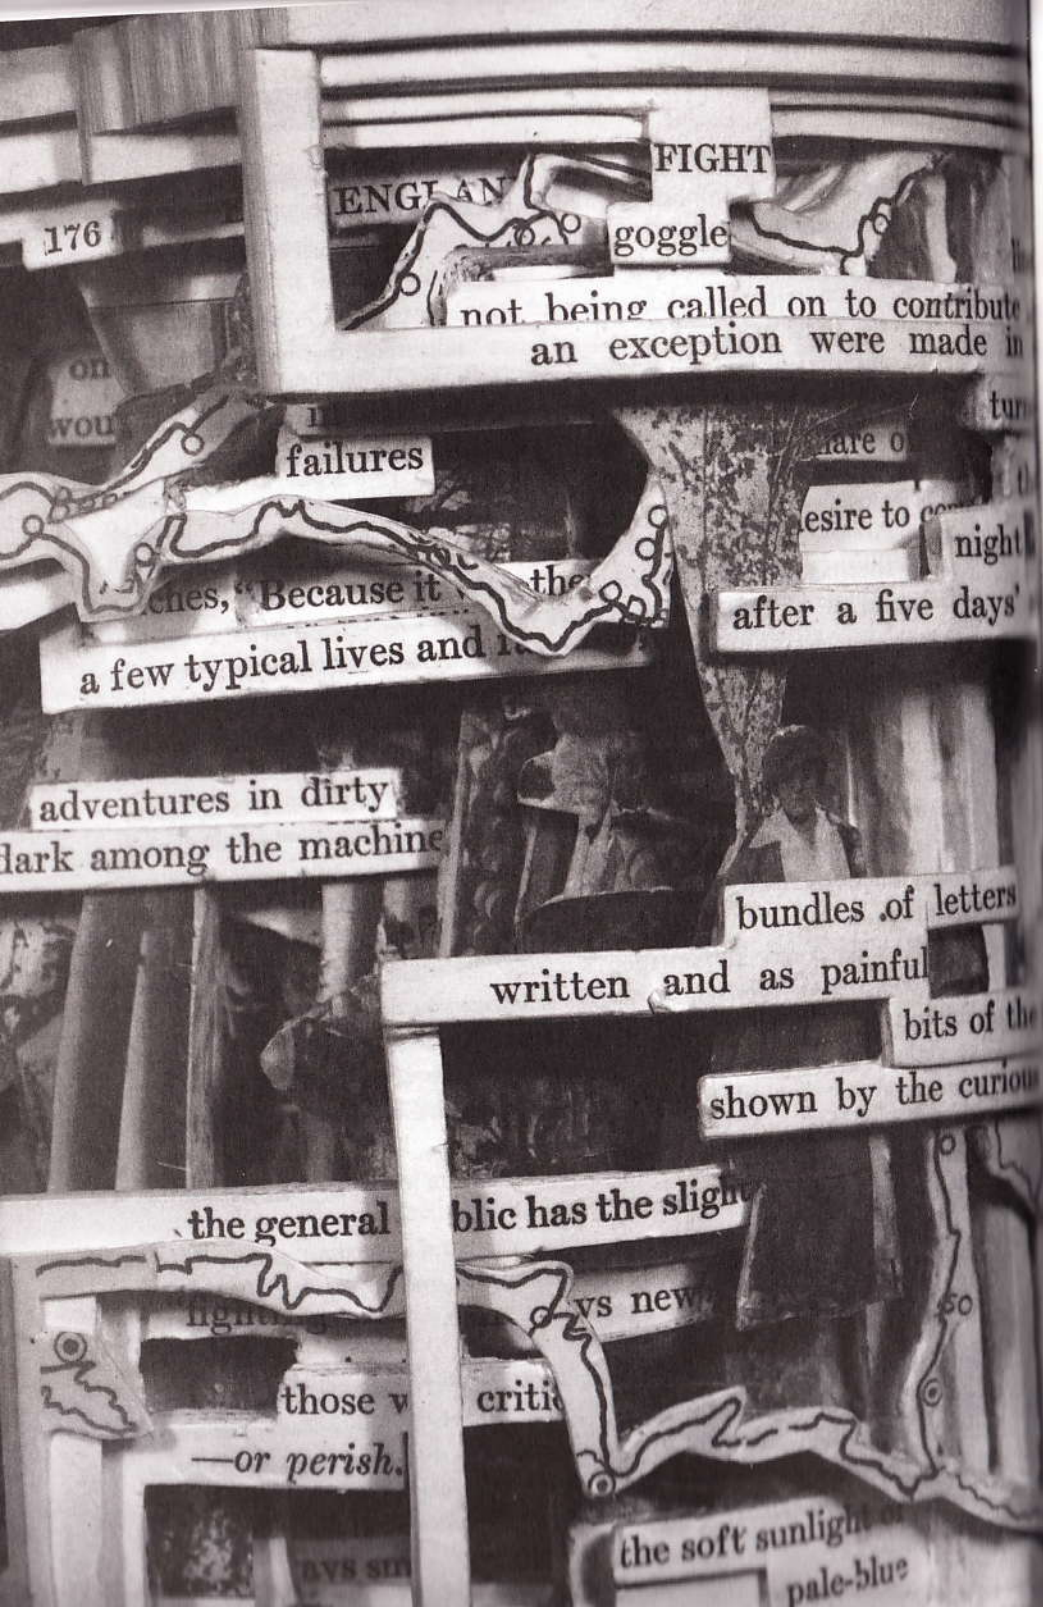 FIGHT
ENGLAN
176
goggle
not being called on to contribute
an exception were made in
on
wou
tur
failures
are o
esire to
night
ches, "Because it the
after a five days'
a few typical lives and
adventures in dirty
dark among the machine
bundles of letters
written and as painful
bits of the
shown by the curiou
the general blic has the sligh
ys new
those w criti
—or perish.
the soft sunligh
pale-blue